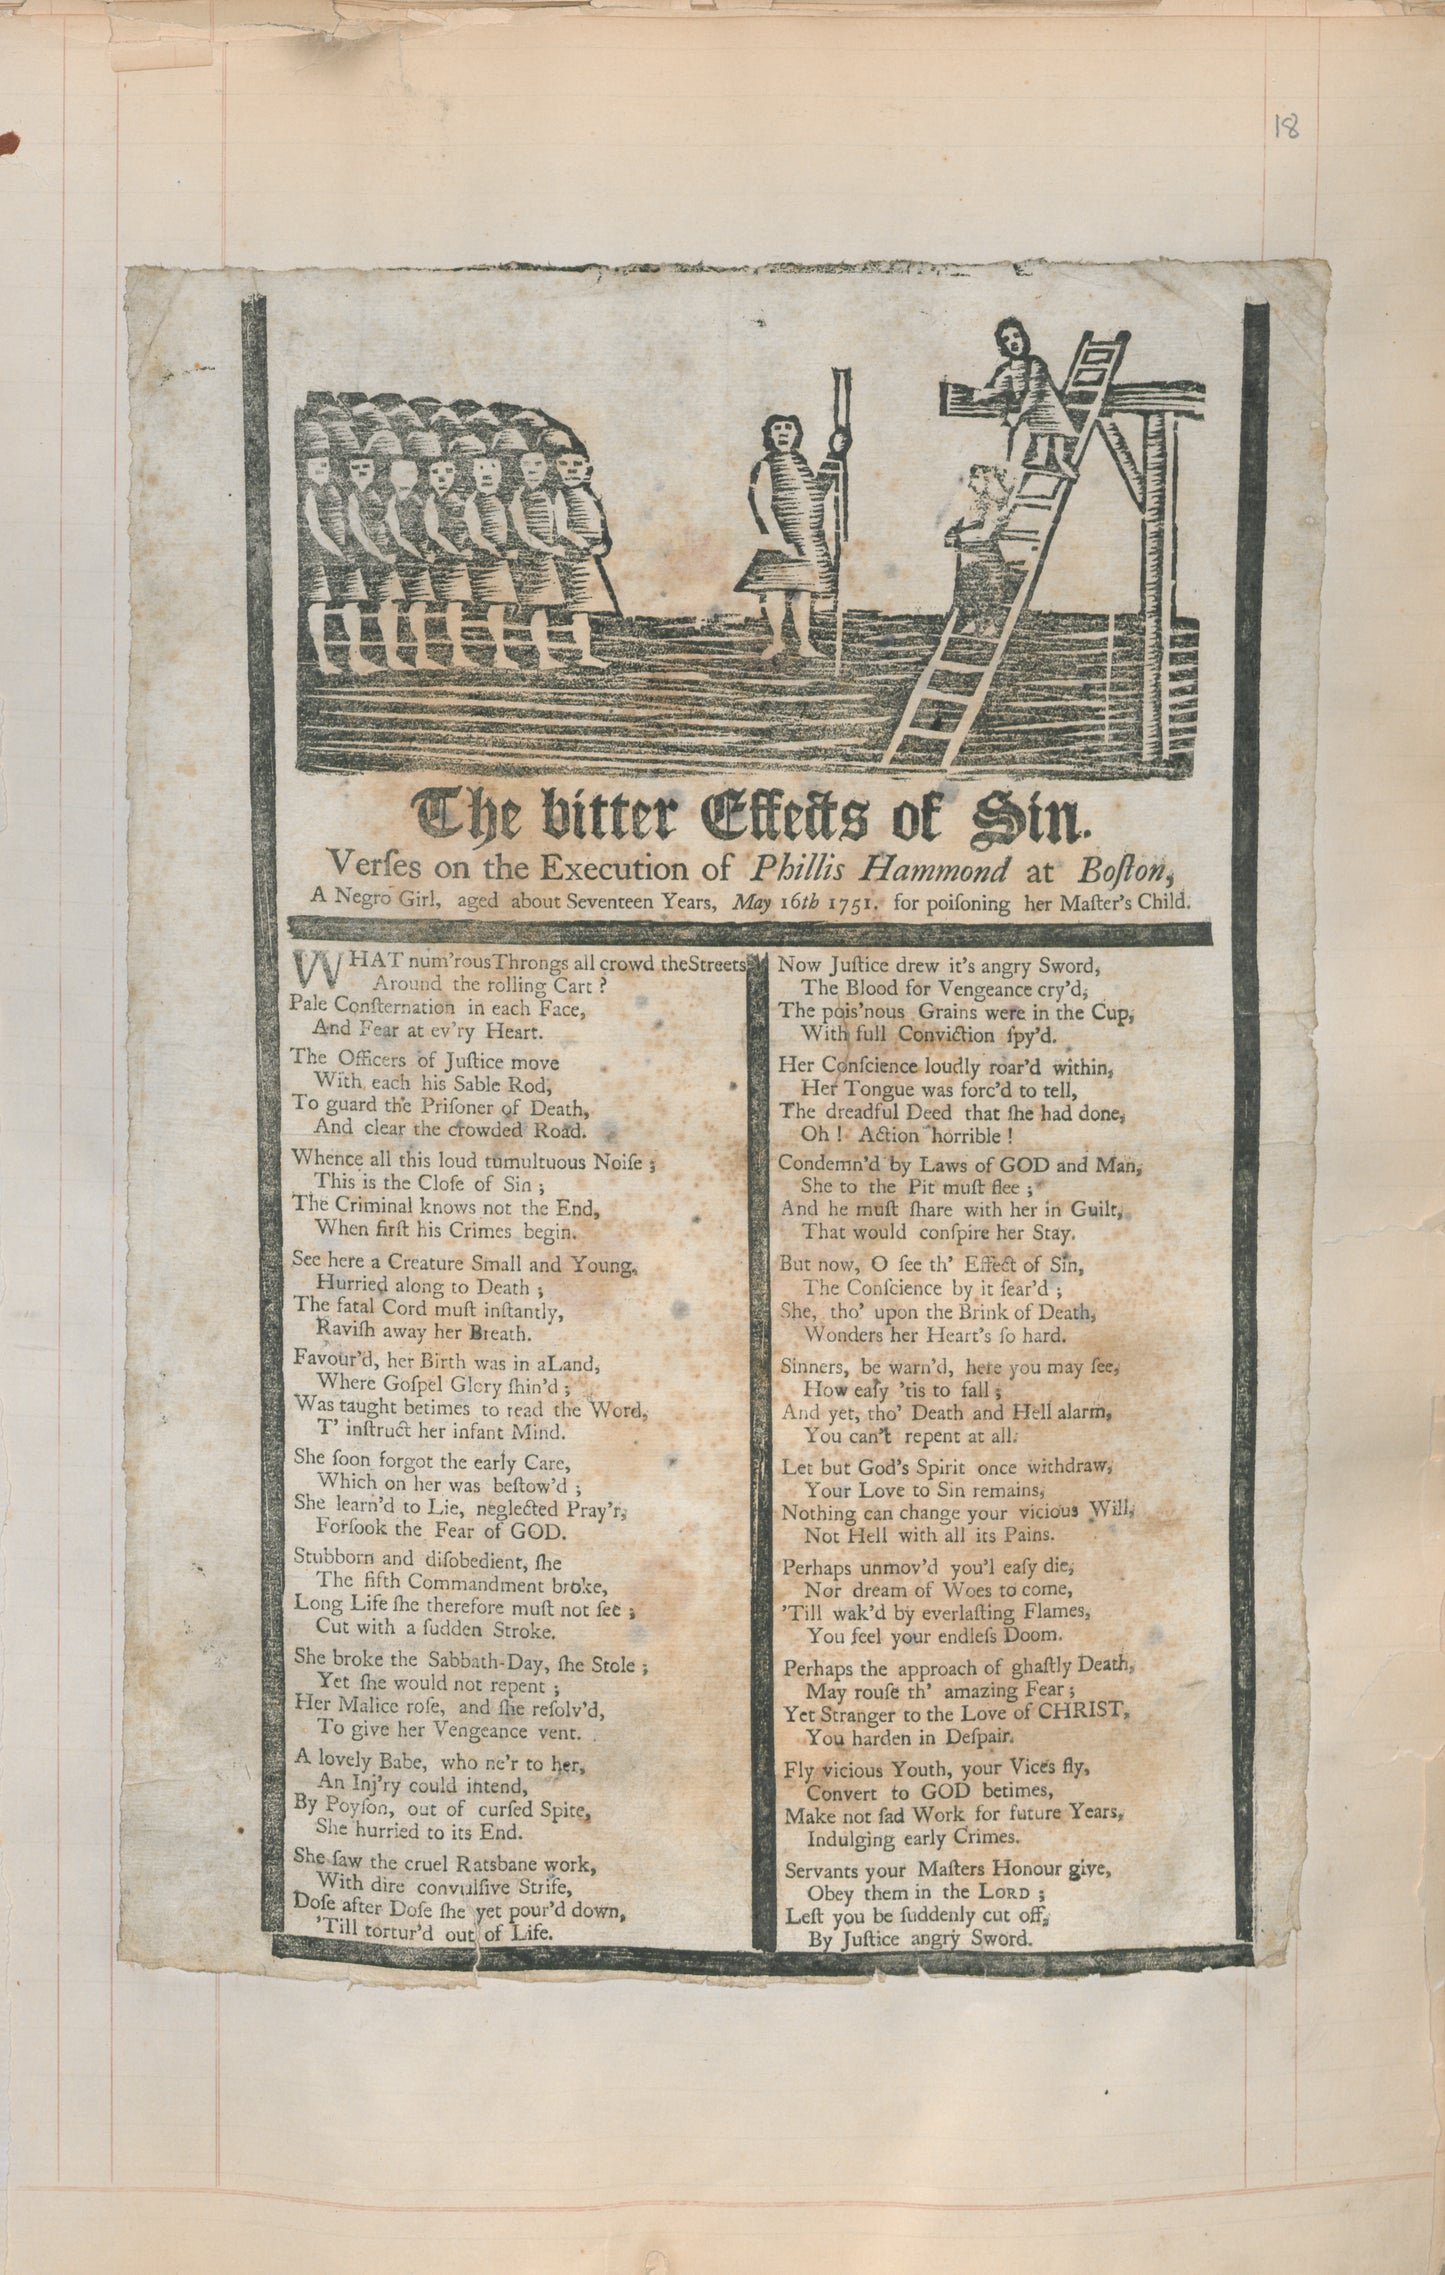 18
The bitter Effects of Sin.
Verſes on the Execution of Phillis Hammond at Boſton,
A Negro Girl, aged about Seventeen Years, May 16th 1751. for poiſoning her Maſter's Child.
WHAT num'rous Throngs all crowd the Streets
Around the rolling Cart ?
Pale Conſternation in each Face,
And Fear at ev'ry Heart.
The Officers of Juſtice move
With each his Sable Rod,
To guard the Priſoner of Death,
And clear the crowded Road.
Whence all this loud tumultuous Noiſe ;
This is the Cloſe of Sin ;
The Criminal knows not the End,
When firſt his Crimes begin.
See here a Creature Small and Young,
Hurried along to Death ;
The fatal Cord muſt inſtantly,
Raviſh away her Breath.
Favour'd, her Birth was in a Land,
Where Goſpel Glory ſhin'd ;
Was taught betimes to read the Word,
T' inſtruct her infant Mind.
She ſoon forgot the early Care,
Which on her was beſtow'd ;
She learn'd to Lie, neglected Pray'r,
Forſook the Fear of GOD.
Stubborn and diſobedient, ſhe
The fifth Commandment broke,
Long Life ſhe therefore muſt not ſee ;
Cut with a ſudden Stroke.
She broke the Sabbath-Day, ſhe Stole ;
Yet ſhe would not repent ;
Her Malice roſe, and ſhe reſolv'd,
To give her Vengeance vent.
A lovely Babe, who ne'r to her,
An Inj'ry could intend,
By Poyſon, out of curſed Spite,
She hurried to its End.
She ſaw the cruel Ratsbane work,
With dire convulſive Strife,
Doſe after Doſe ſhe yet pour'd down,
'Till tortur'd out of Life.
Now Juſtice drew it's angry Sword,
The Blood for Vengeance cry'd,
The pois'nous Grains were in the Cup,
With full Conviction ſpy'd.
Her Conſcience loudly roar'd within,
Her Tongue was forc'd to tell,
The dreadful Deed that ſhe had done,
Oh ! Action horrible !
Condemn'd by Laws of GOD and Man,
She to the Pit muſt flee ;
And he muſt ſhare with her in Guilt,
That would conſpire her Stay.
But now, O ſee th' Effect of Sin,
The Conſcience by it ſear'd ;
She, tho' upon the Brink of Death,
Wonders her Heart's ſo hard.
Sinners, be warn'd, here you may ſee,
How eaſy 'tis to fall ;
And yet, tho' Death and Hell alarm,
You can't repent at all.
Let but God's Spirit once withdraw,
Your Love to Sin remains,
Nothing can change your vicious Will,
Not Hell with all its Pains.
Perhaps unmov'd you'l eaſy die,
Nor dream of Woes to come,
'Till wak'd by everlaſting Flames,
You feel your endleſs Doom.
Perhaps the approach of ghaſtly Death,
May rouſe th' amazing Fear ;
Yet Stranger to the Love of CHRIST,
You harden in Deſpair.
Fly vicious Youth, your Vices fly,
Convert to GOD betimes,
Make not ſad Work for future Years,
Indulging early Crimes.
Servants your Maſters Honour give,
Obey them in the LORD ;
Leſt you be ſuddenly cut off,
By Juſtice angry Sword.